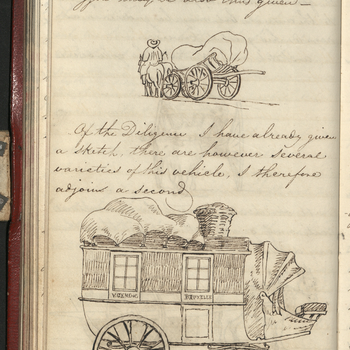 may be
given —
Of the Diligence I have already given
a sketch, there are however several
varieties of this vehicle, I therefore
adjoin a second
BRUXELLES